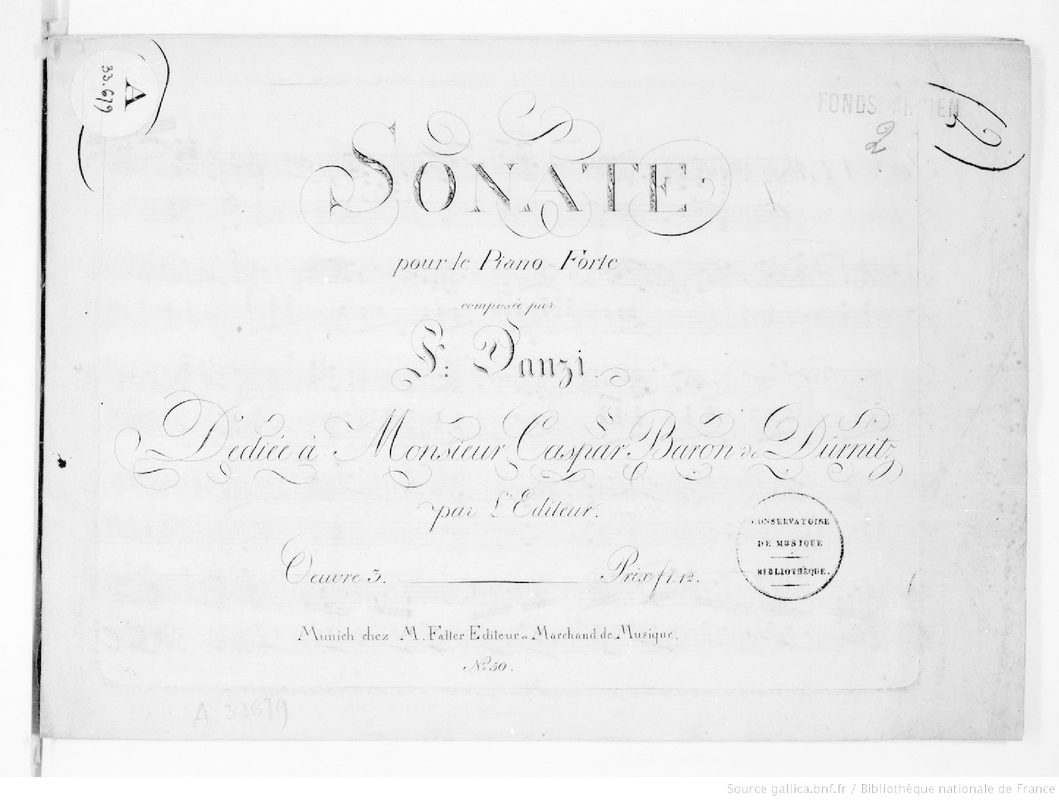 A
33.679
FONDS ANCIEN
2
2
SONATE
pour le Piano-Forte
composée par
F: Danzi.
Dediée à Monsieur Caspar Baron de Dürnitz
par L'Editeur.
Oeuvre 3. Prix f 1.12.
CONSERVATOIRE
DE MUSIQUE
BIBLIOTHÈQUE.
Munich chez M. Falter Editeur et Marchand de Musique.
No. 50.
A 33679
Source gallica.bnf.fr / Bibliothèque nationale de France